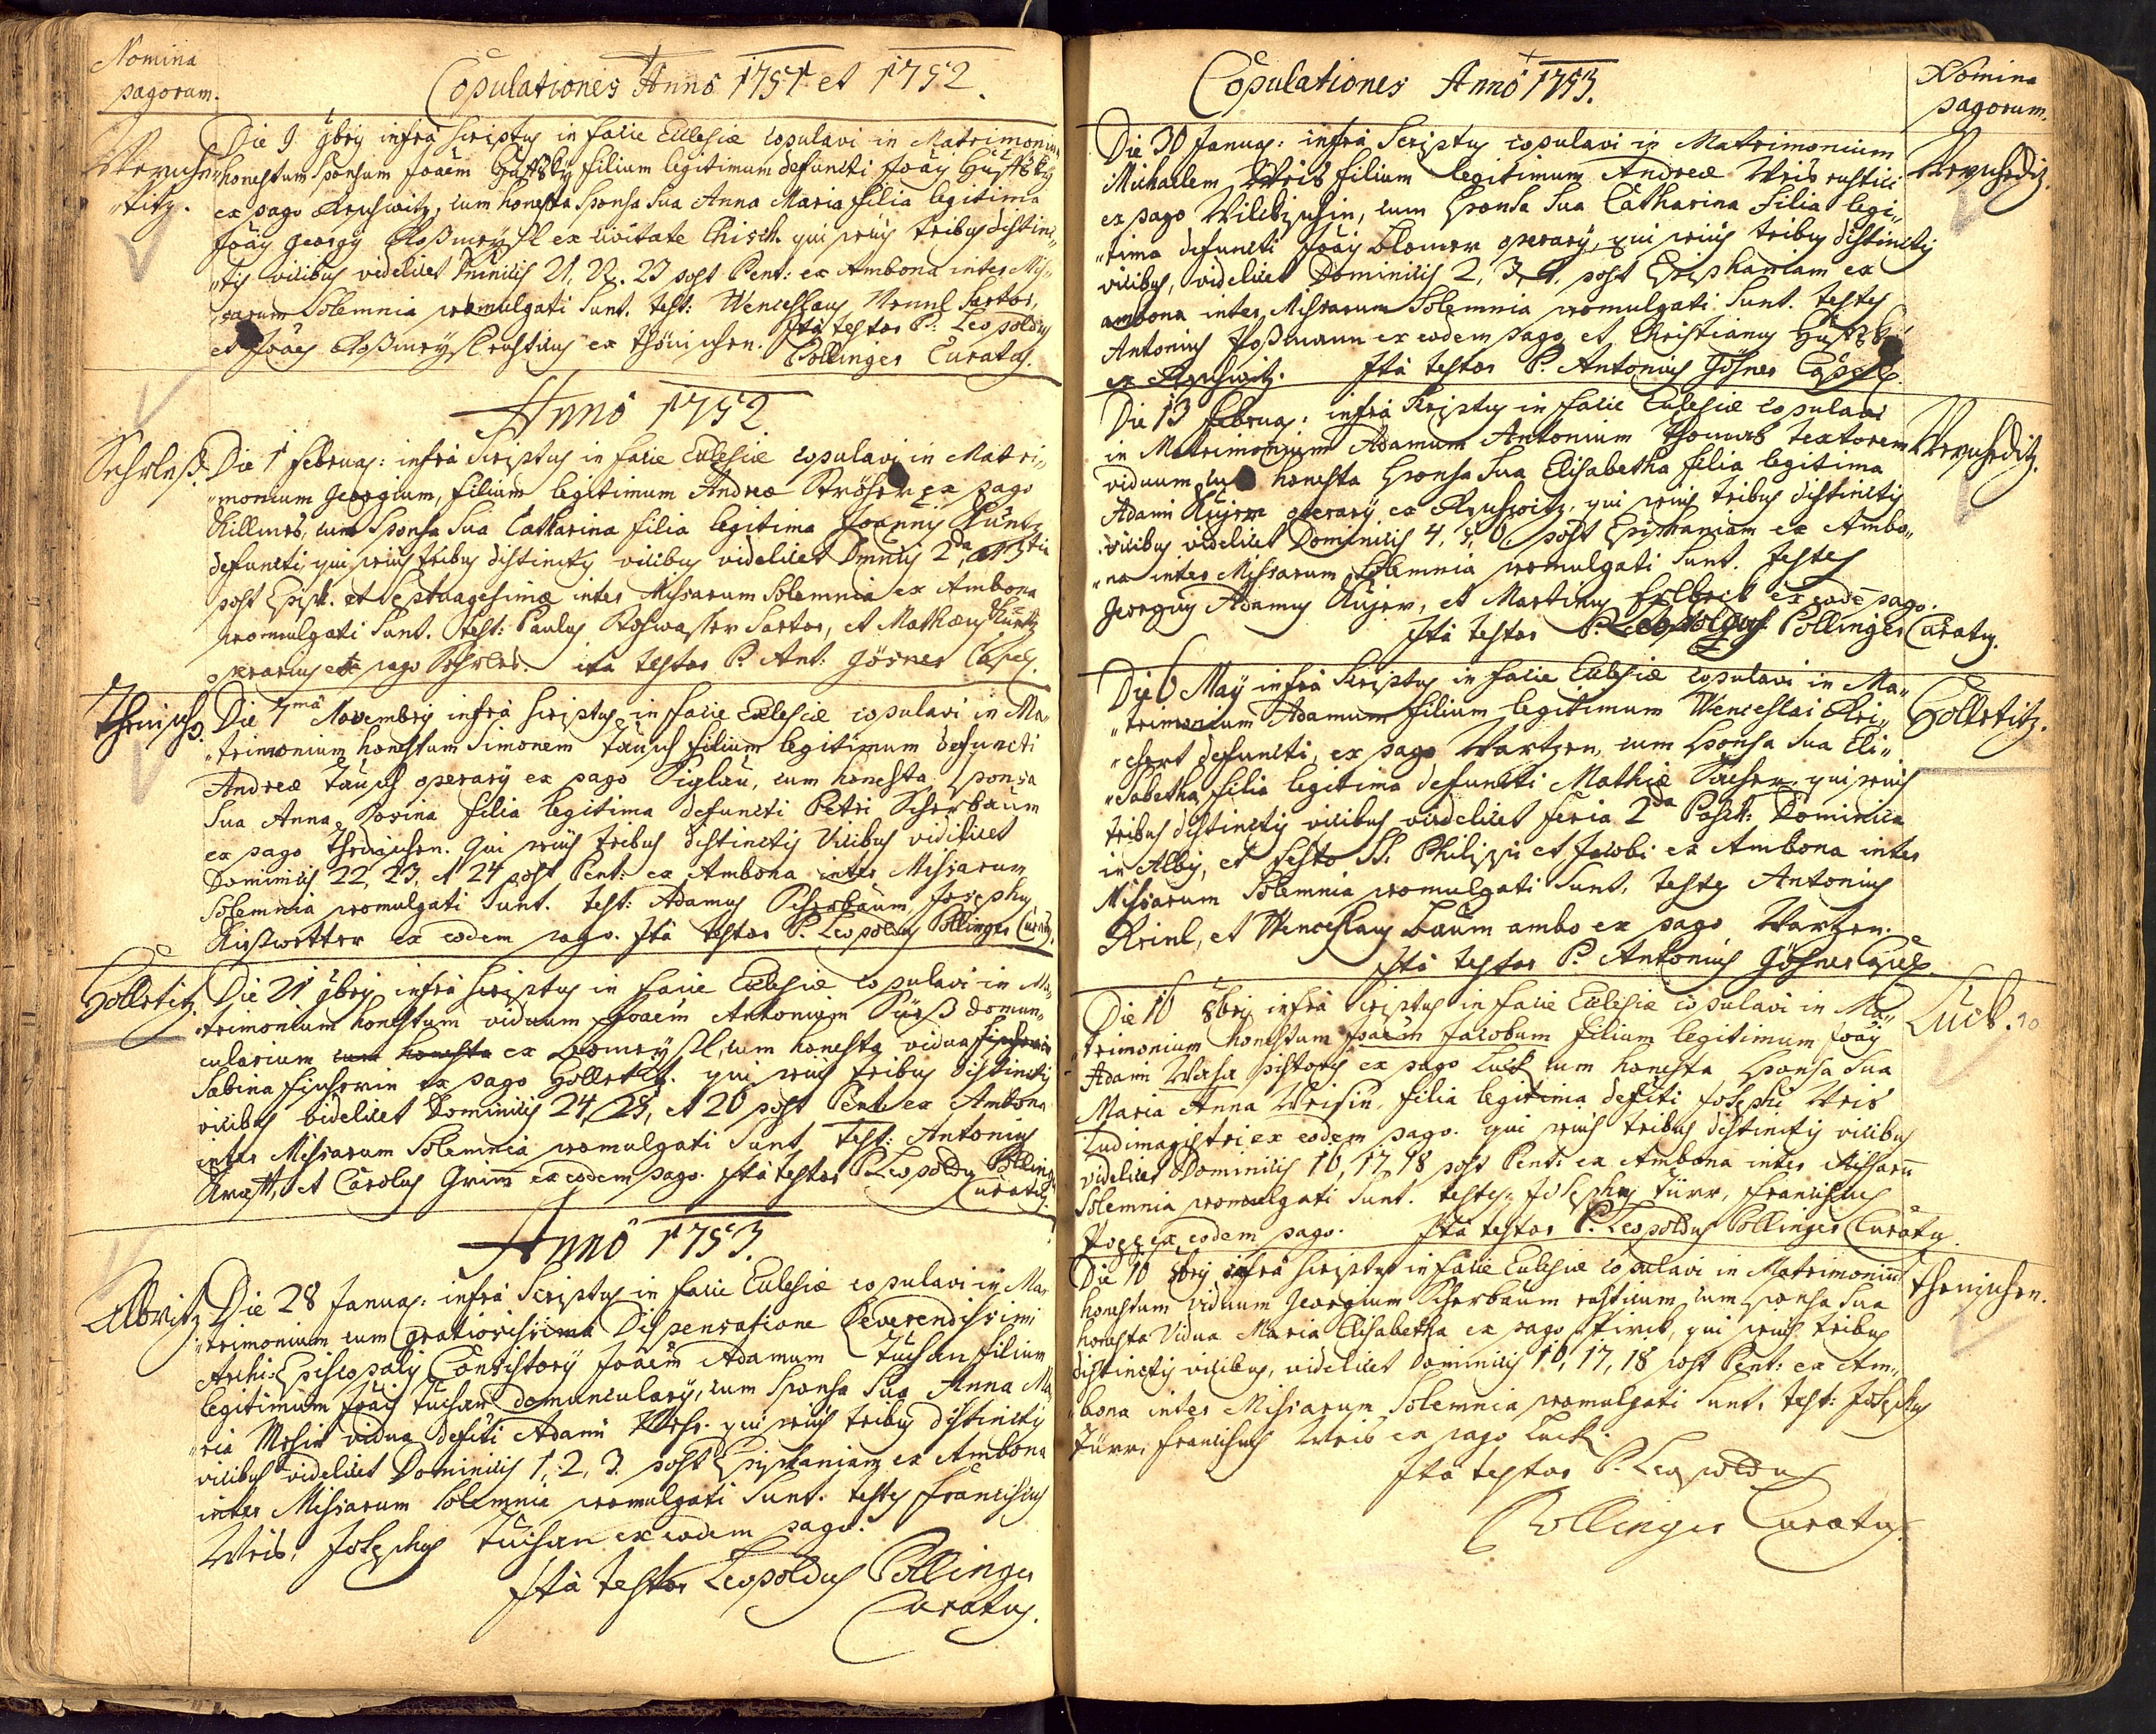 Nomina
pagorum.
Copulationes Anno 1751 et 1752.
Die 9 9bris infra scriptus in facie Ecclesiæ copulavi in Matrimonium
honestum Sponsum Joãem filium legitimum defuncti Joãis
ex pago cum honesta Sponsa Sua Anna Maria filia legitima
Joãis Georgij Roßmeysl ex civitate Chisch. qui prius tribus distinc„
„tis vicibus videlicet Dominicis 21, 22. 23 post Pent: ex Ambona inter Mis„
„sarum Solemnia promulgati Sunt. test: Wenceslaus Sartor,
et Joães Roßmeysl rusticus ex Thönischen. Ita testor P: Leopoldus
Pollinger Curatus.
Anno 1752
Sehrles. Die 1 Februar: infra Scriptus in facie Ecclesiæ copulavi in Matri„
„monium Georgium, filium legitimum Andreæ Ströher ex pago
cum Sponsa Sua Catharina filia legitima Joannis Kuntz
defuncti, qui prius tribus distinctis vicibus videlicet Dminicis 2da, et 3tia
post Epiph. et Septuagesimæ inter Missarum Solemnia ex Ambona
promulgati Sunt. test: Paulus Roswasser Sartor, et Mathæus Kuntz
operarius ex pago Sehrles. ita testor P. Ant: Gösner Capel.
Thenisch. Die 7ma Novembris infra scriptus in facie Ecclesiæ copulavi in Ma„
„trimonium honestum Simonem Täusch filium legitimum defuncti
Andreæ Täusch operarij ex pago Siglau, cum honesta sponsa
Sua Anna Rosina filia legitima defuncti Petri Scherbaum
ex pago Thenischen. Qui prius tribus distinctis Vicibus videlicet
Dominicis 22, 23, et 24 post Pent: ex Ambona inter Missarum
Solemnia promulgati Sunt. test: Adamus Scherbaum, Josephus
Kießwetter ex eodem pago. Ita testor P. Leopoldus Pollinger Curatus.
Holletitz. Die 21 9bris infra scriptus in facie Ecclesiæ copulavi in Ma„
„trimonium honestum viduum Joãem Antonium Süeß domun„
cularium cum honesta ex cum honesta vidua
Sabina Fischerin ex pago Holletitz. qui prius tribus distinctis
vicibus videlicet Dominicis 24, 25, et 26 post Pent: ex Ambona
inter Missarum Solemnia promulgati Sunt, test: Antonius
Krafft, et Carolus Grim̄ ex eodem pago. Ita testor P. Leopoldus Pollinger
Curatus.
Anno 1753.
Albritz. Die 28 Januar: infra Scriptus in facie Ecclesiæ copulavi in Ma„
„trimonium cum gratiosissima Dispensatione Reverendissimi
Archi-Episcopalis Consistorij Joãem Adamum Tuschan filium
legitimum Joãis Tuschan domuncularij, cum Sponsa Sua Anna Ma„
„ria vidua defũti Adami qui prius tribus distinctis
vicibus videlicet Dominicis 1, 2, 3. post Epiphaniam ex Ambona
inter Missarum Solemnia promulgati Sunt. testes Franciscus
Weis, Josephus Tuschan ex eodem pago.
Ita testor Leopoldus Pollinger
Curatus.
Copulationes Anno 1753.
Nomina
pagorum.
Die 30 Januar: infra Scriptus copulavi in Matrimonium
Michaelem Weis filium legitimum Andreæ Weis rustici
ex pago cum Sponsa Sua Catharina filia legi„
„tima defuncti Joãis Blomer operarij, qui prius tribus distinctis
vicibus, videlicet Dominicis 2, 3, 4. post Epiphaniam ex
ambona inter Missarum Solemnia promulgati Sunt. testes
Antonius ex eodem pago, et Christianus
Ita testor P. Antonius Gösner Capel.
Die 13 Februar: infra Scriptus in facie Ecclesiæ copulavi
in Matrimonium Adamum Antonium Textorem
viduum, cum honesta Sponsa Sua Elisabetha filia legitima
Adami operarij ex qui prius tribus distinctis
vicibus videlicet Dominicis 4, 5, 6 post Epiphaniam ex Ambo„
„na inter Missarum Solemnia promulgati Sunt. testes
Georgius Adamus et Martinus ex eodē pago.
Ita testor P. Leopoldus Pollinger Curatus.
Die 6 Maij infra Scriptus in facie Ecclesiæ copulavi in Ma„
„trimonium Adamum filium legitimum Wenceslai Rei„
„chert defuncti, ex pago Wartzen, cum Sponsa Sua Eli„
„Sabetha filia legitima defuncti Mathiæ qui prius
tribus distinctis vicibus videlicet feria 2da Pasch: Dominica
in Albis, et festo SS. Philippi et Jacobi ex Ambona inter
Missarum Solemnia promulgati Sunt, testes Antonius
Reinl, et Wenceslaus Baum ambo ex pago Wartzen.
Ita testor P. Antonius Gösner Capel.
Holletitz.
Die 16 8bris infra Scriptus in facie Ecclesiæ copulavi in Ma„
„trimonium honestum Joãem Jacobum filium legitimum Joãis
Adami pistoris ex pago Luck cum honesta Sponsa Sua
Maria Anna Weisin, filia legitima defũti Josephi Weis
Ludimagistri ex eodem pago. qui prius tribus distinctis vicibus
videlicet Dominicis 16, 17, 18 post Pent: ex Ambona inter Missarū
Solemnia promulgati Sunt. testes: Josephus Türr, Franciscus
ex eodem pago. Ita testor P. Leopoldus Pollinger Curatus.
Luck. 10
Die 16 8bris infra scriptus in facie Ecclesiæ copulavi in Matrimoniū
honestum viduum Georgium Scherbaum rusticum, cum sponsa Sua
honesta Vidua Maria Elisabetha ex pago qui prius tribus
distinctis vicibus, videlicet Dominicis 16, 17, 18 post Pent: ex Am„
„bona inter Missarum Solemnia promulgati Sunt, test: Josephus
Türr, Franciscus Weis ex pago Luck.
Ita testor P. Leopoldus
Pollinger Curatus.
Thenischen.